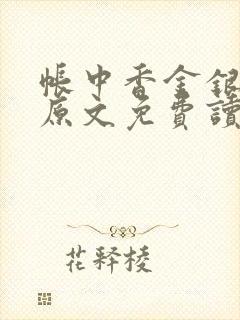 帳中香金銀
原文免費讀
花釋棱